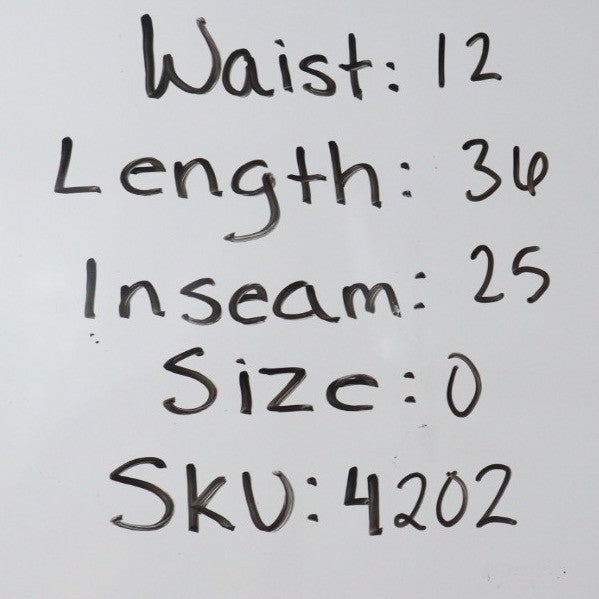 Waist: 12
Length: 36
Inseam: 25
Size: 0
SKU: 4202